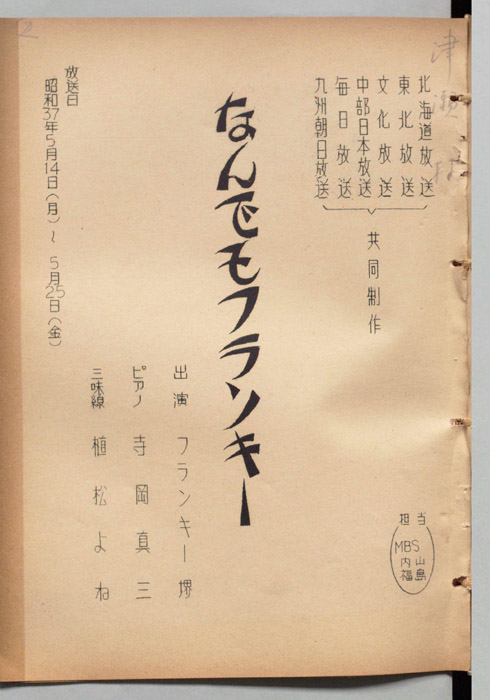 津瀬
北海道放送
東北放送
文化放送
中部日本放送
毎日放送
九州朝日放送
共同制作
担当
MBS
山島
内福
なんでもフランキー
出演 フランキー堺
ピアノ 寺岡真三
三味線 植松よね
放送日
昭和37年5月14日(月)~5月25日(金)
2